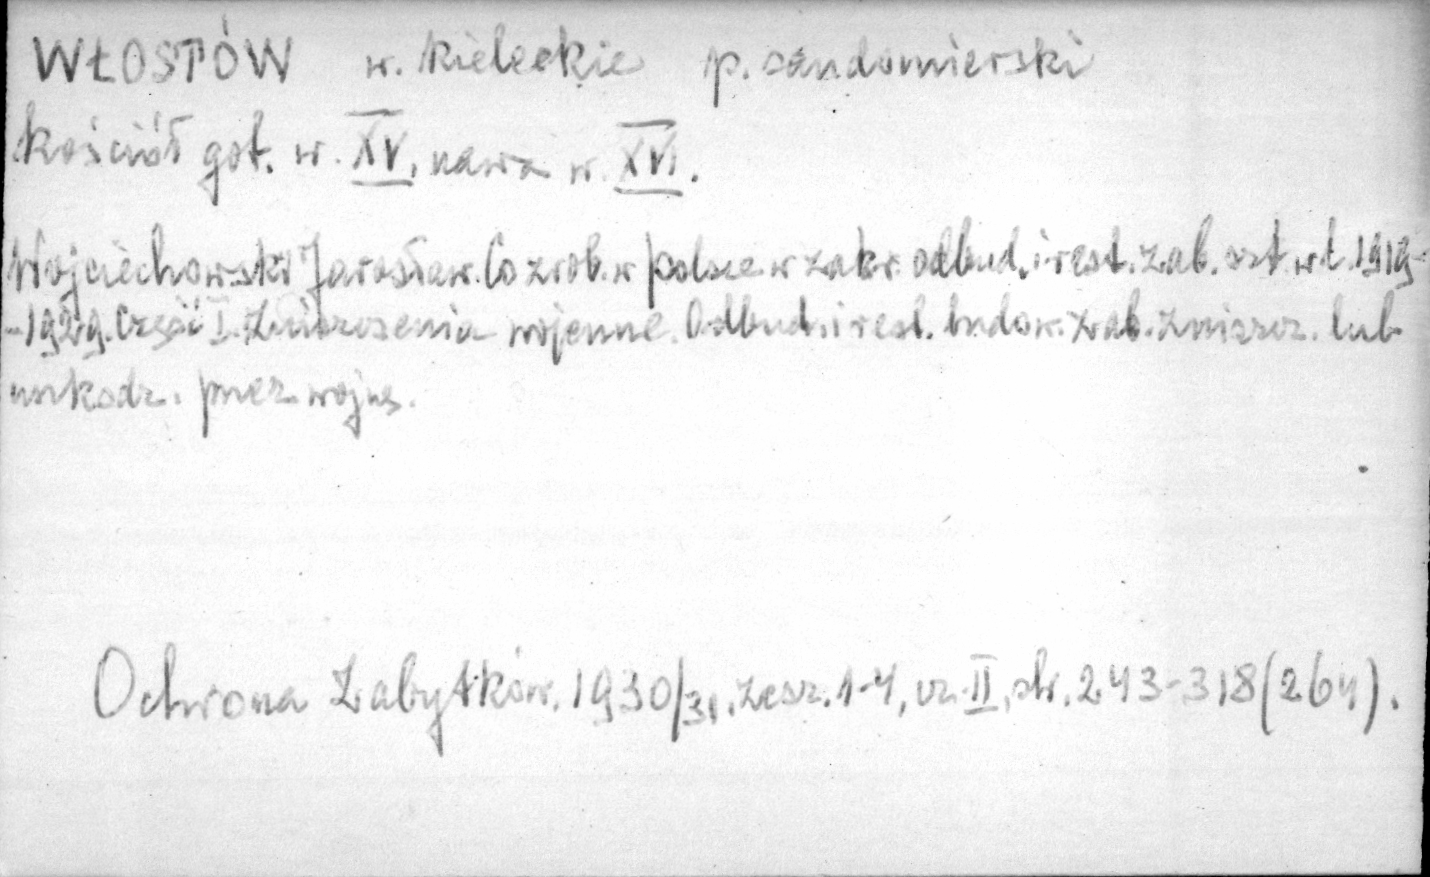 WŁOSTÓW w. kieleckie p. sandomierski
kościół got. w. XV, nawa w. XVI.
Wojciechowski Jarosław. Co zrob. w Polsce w zakr. odbud. i rest. zab. szt. w l. 1919-
-1929. Część I. Zniszczenia wojenne. Odbud. i rest. budow. zab. zniszcz. lub
uszkodz. przez wojnę.
Ochrona Zabytków. 1930/31. zesz. 1-4, cz. II, str. 243-318 (264).